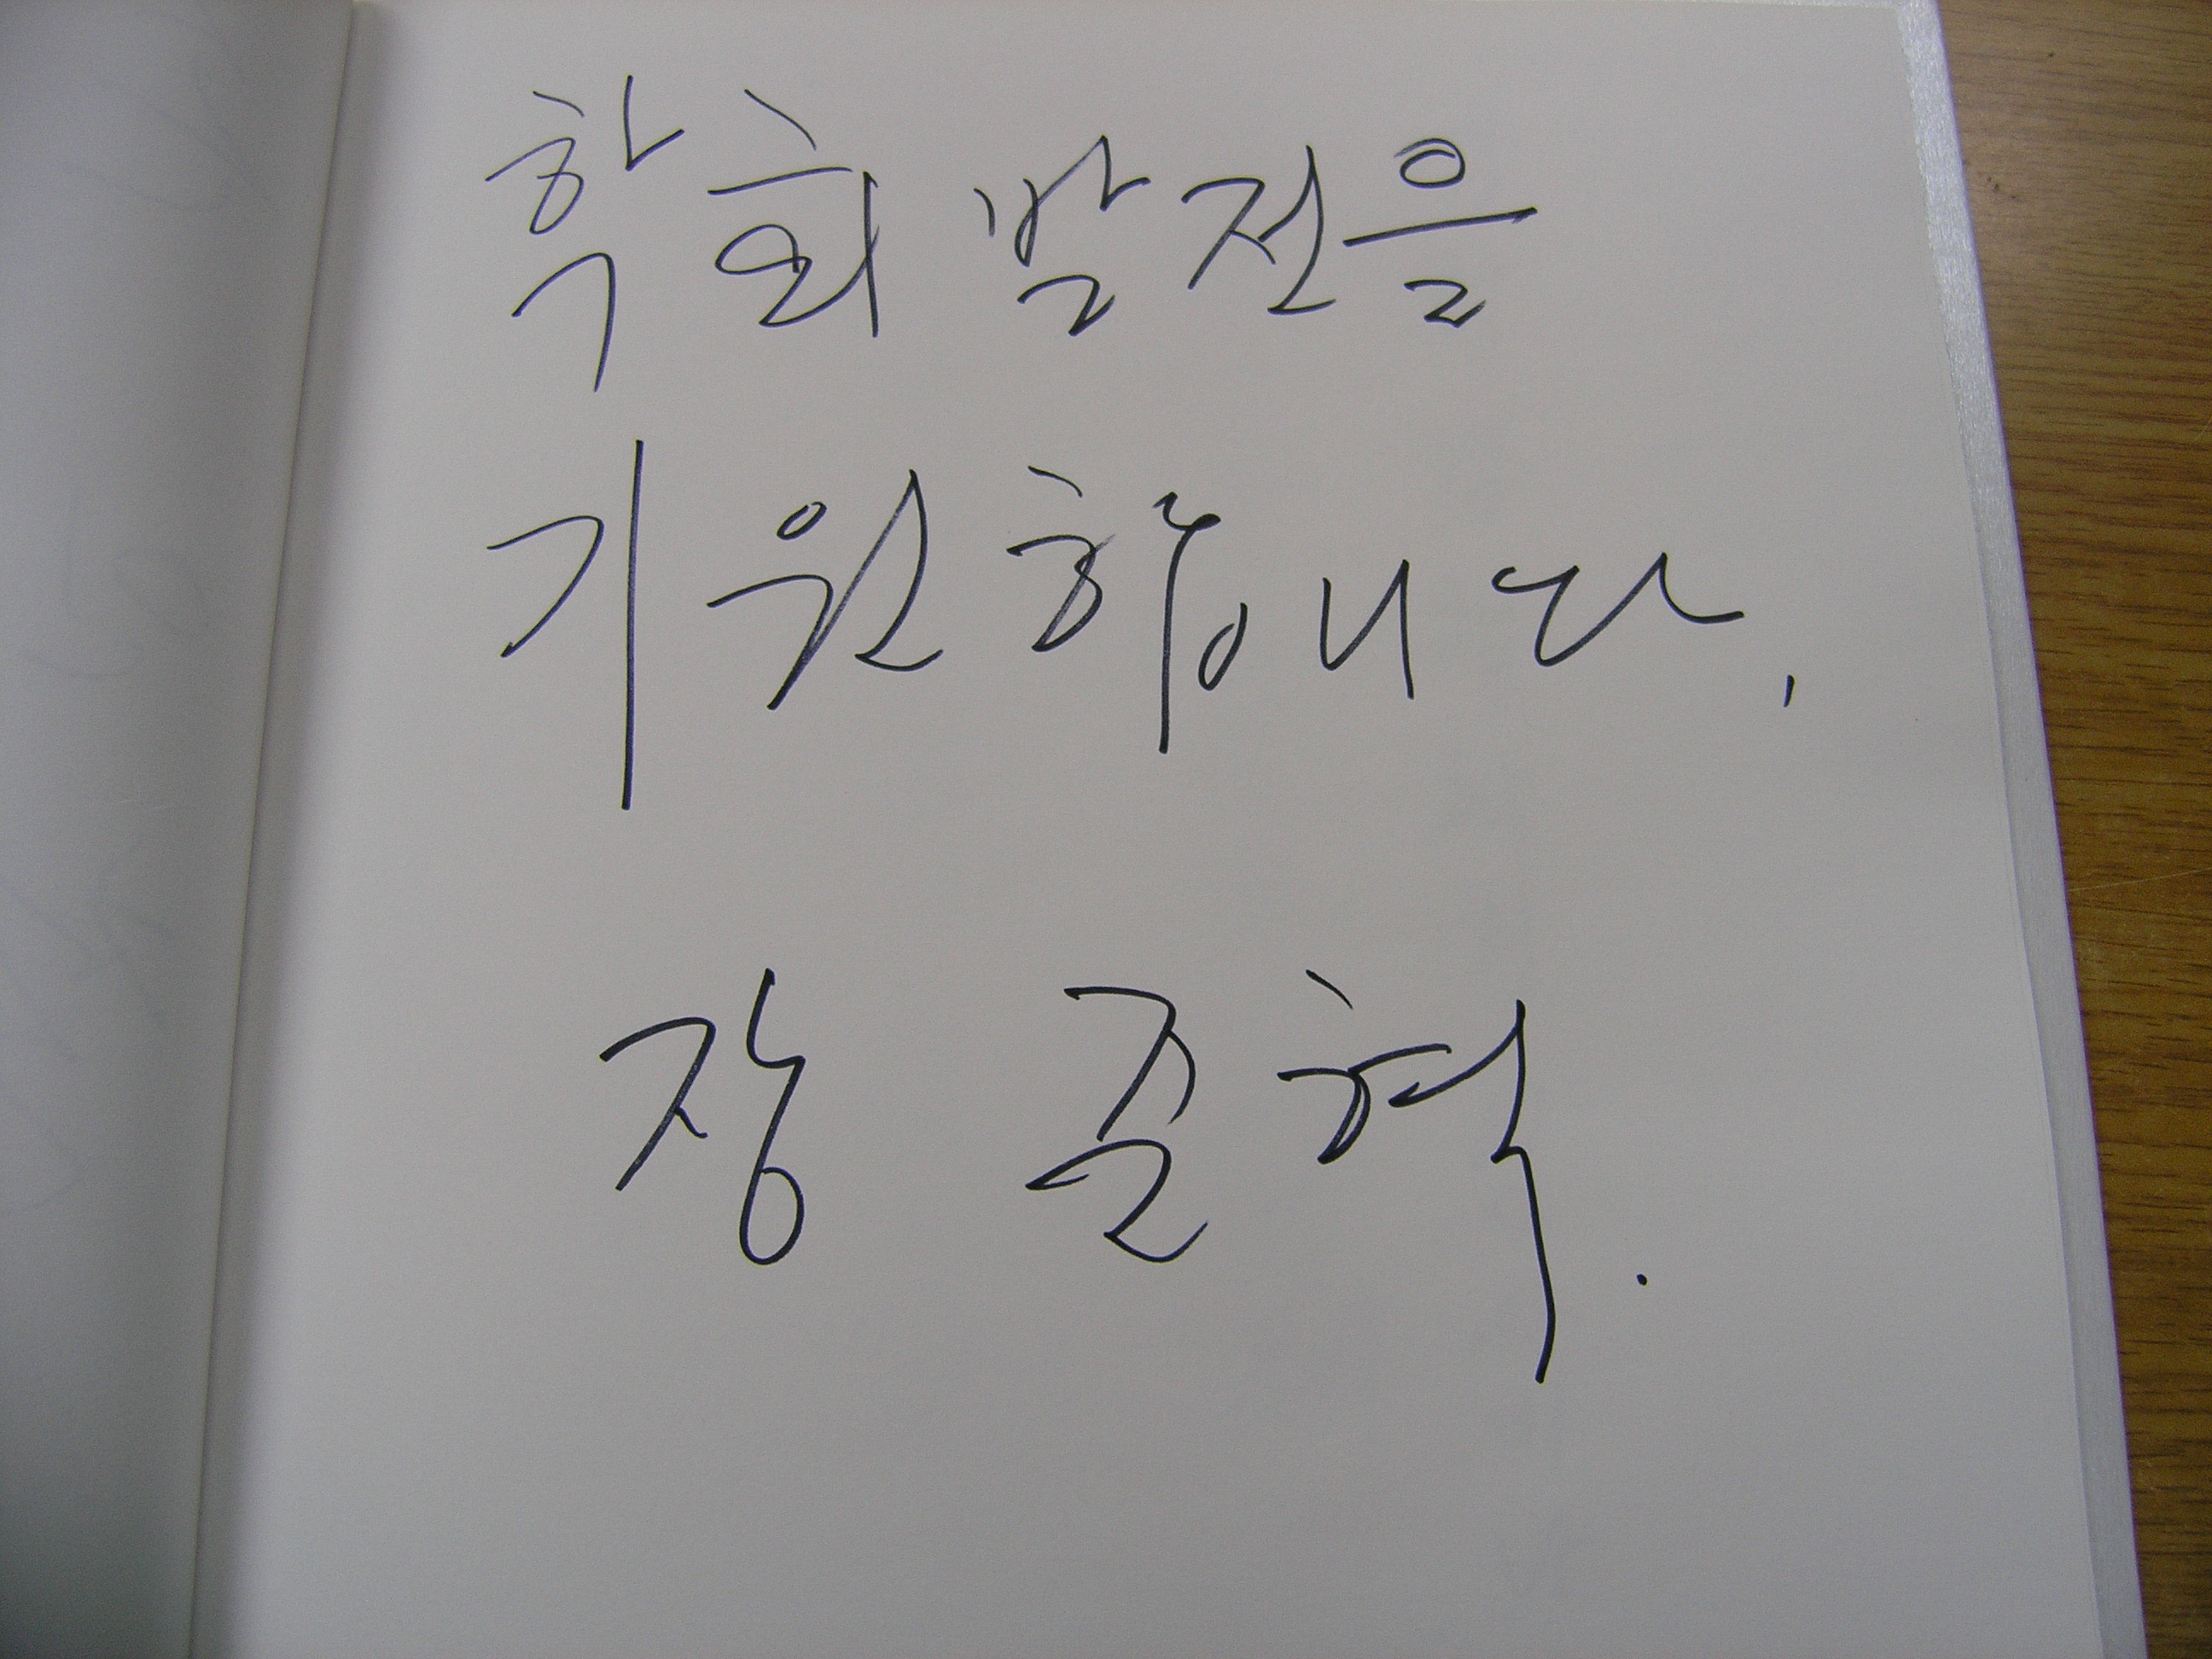 학회 발전을
기원합니다.
장 준혁.